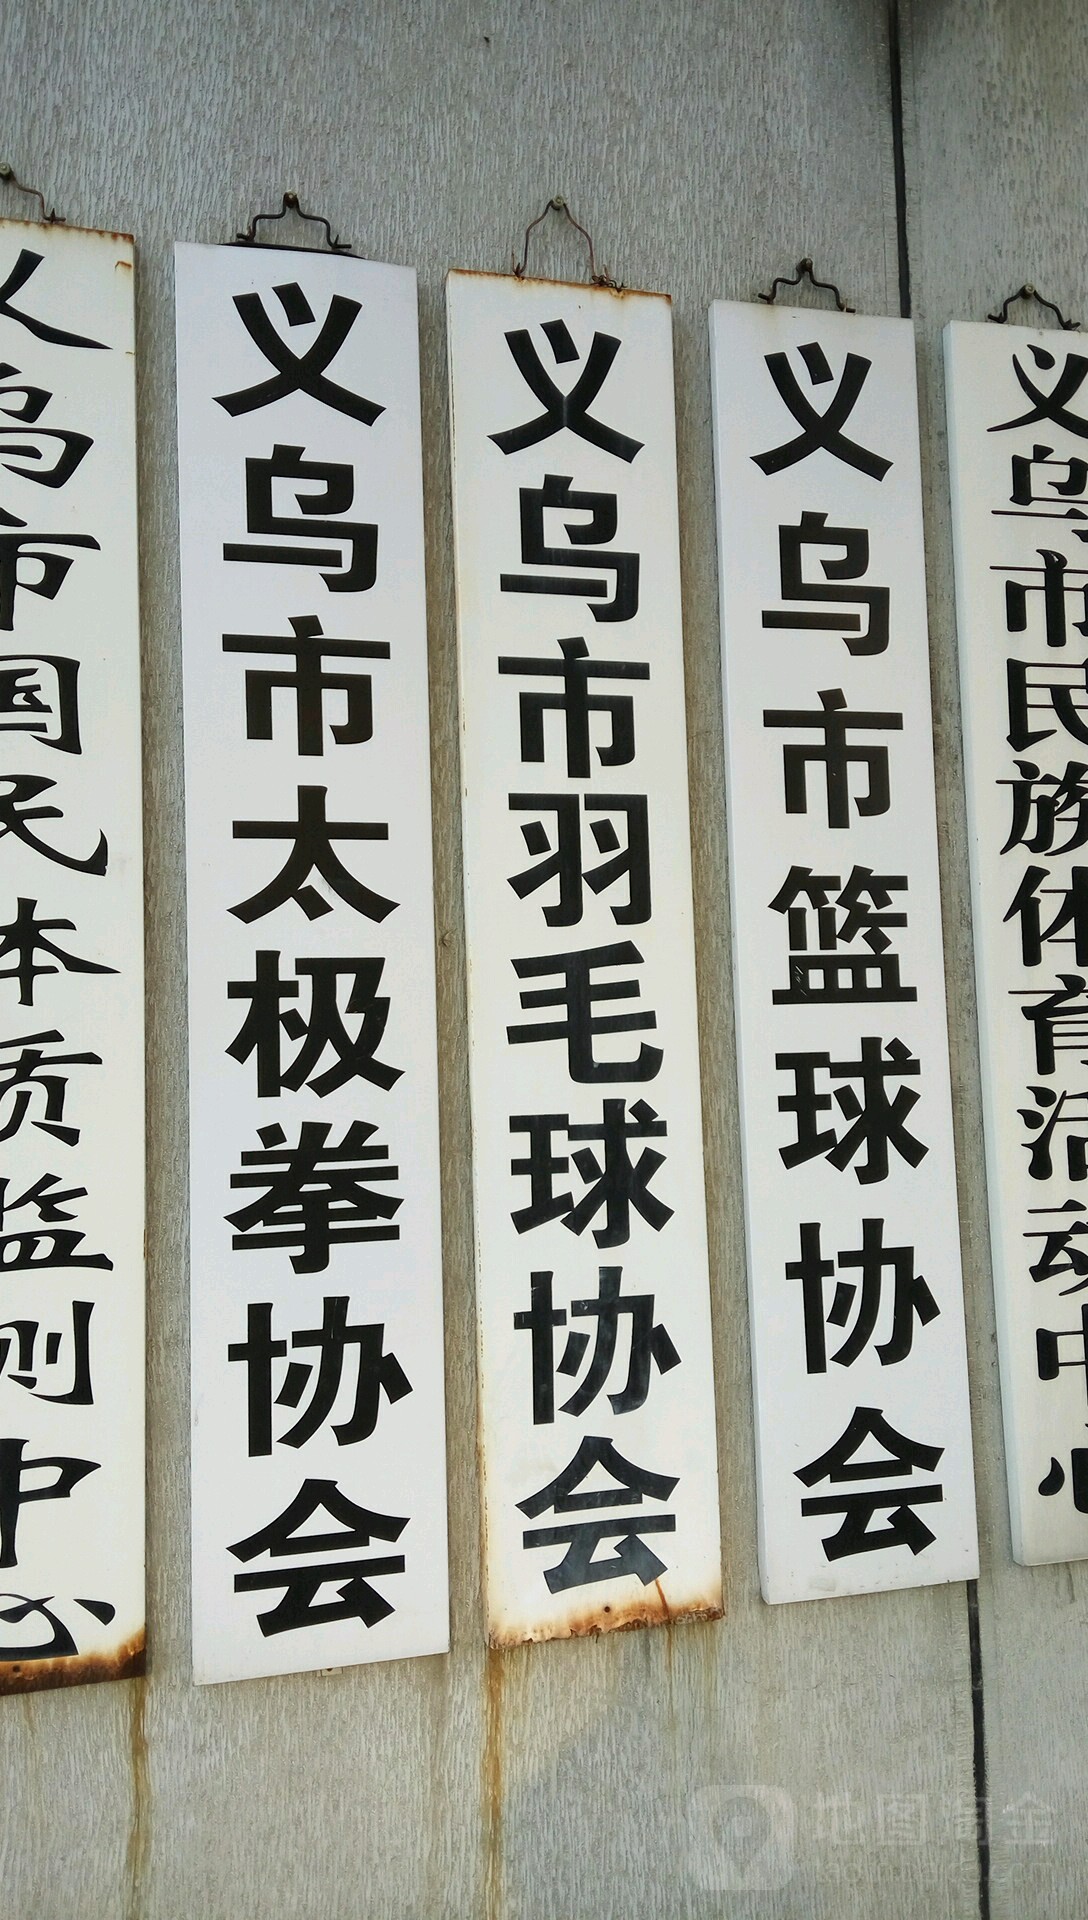 义乌市国民体质监测中心
义乌市太极拳协会
义乌市羽毛球协会
义乌市篮球协会
义乌市民族体育活动中心
地图淘金